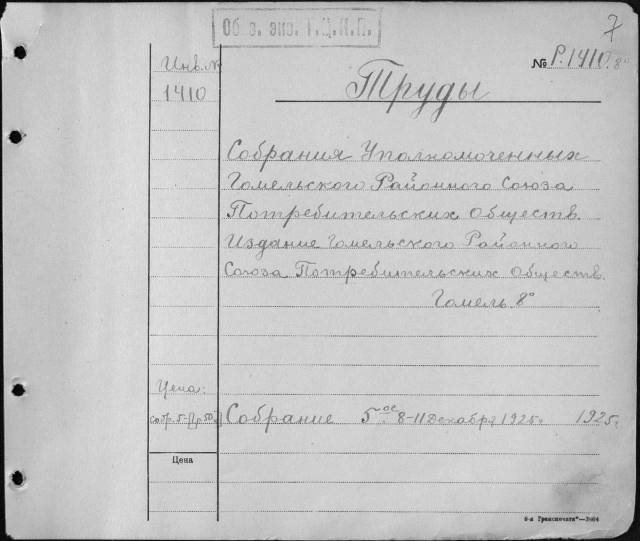 Об. э. эиз. Г.Ц.К.П.
7
Инв. №
1410
№ Р.1410 8°
Труды
Собрания Уполномоченных
Гомельского Районного Союза
Потребительских Обществ.
Издание Гомельского Районного
Союза Потребительских Обществ.
Гомель. 8°
Цена:
Собрание 5ое 8-11 Декабря 1925г. 1925г.
Цена
6-я Транспечати"—3964